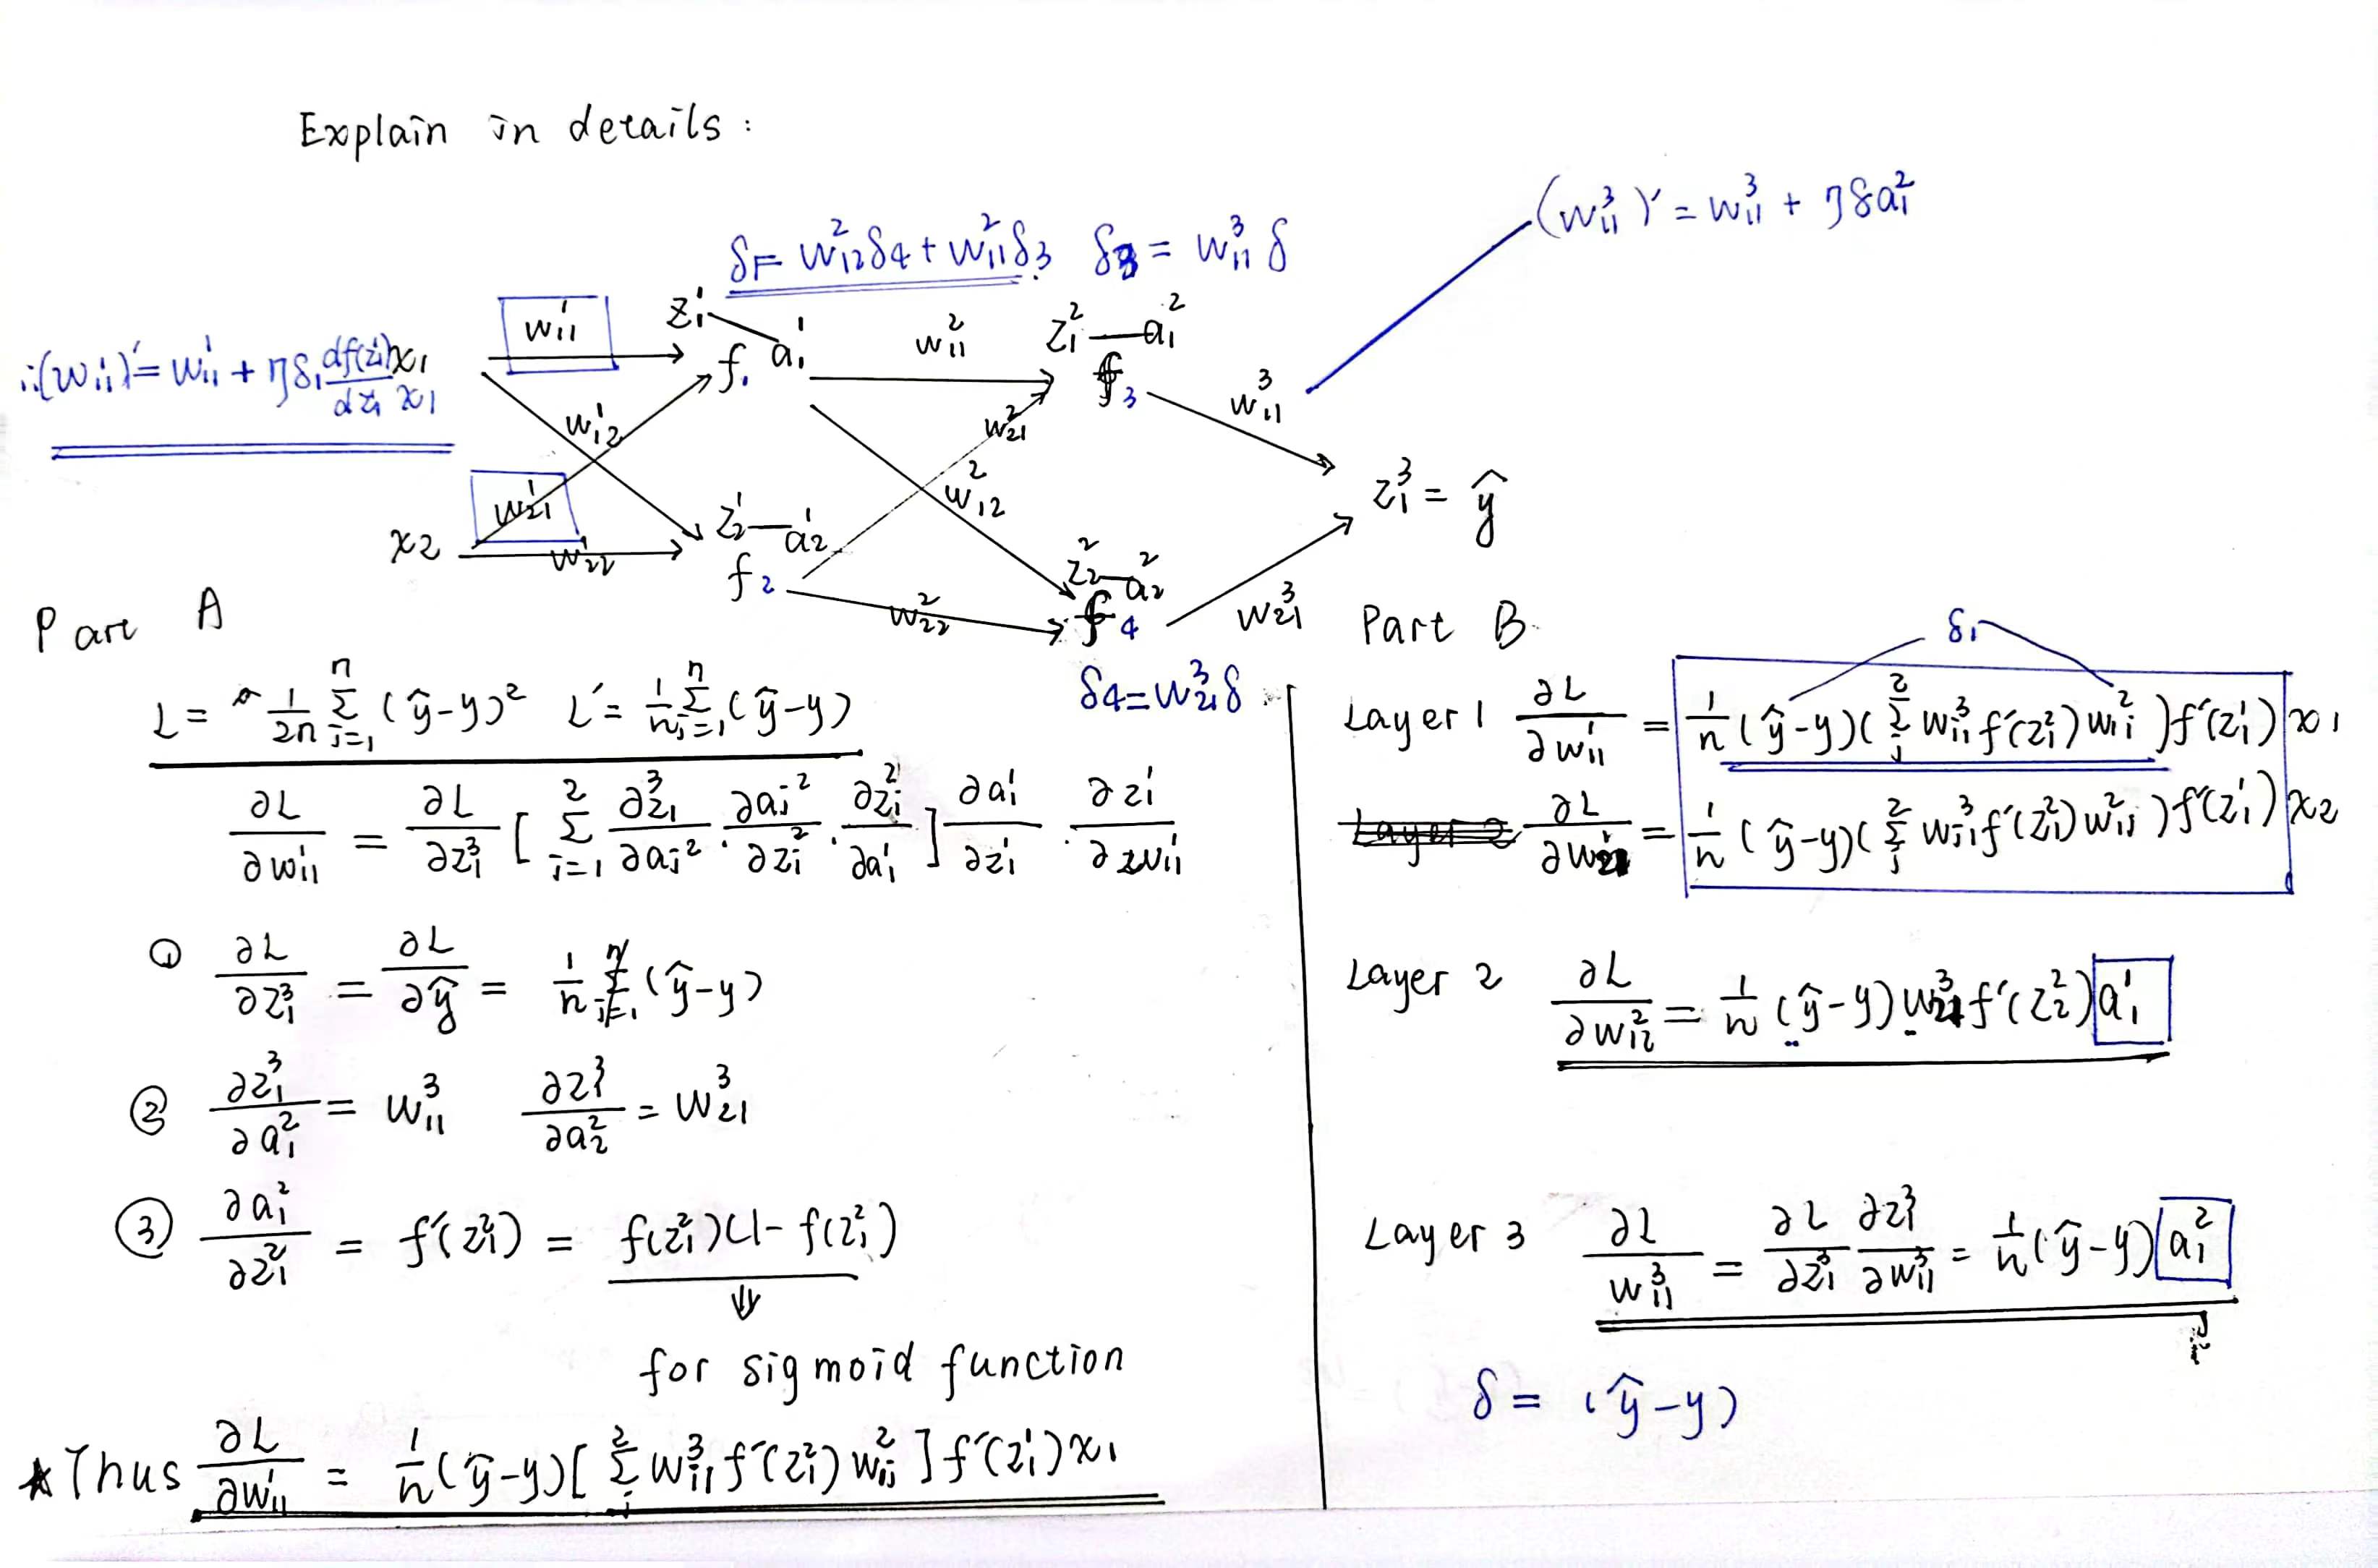 Explain in details :
(w₁₁³)′ = w₁₁³ + ηδa₁²
δ₁= w₁₂²δ4 + w₁₁²δ3   δ3 = w₁₁³ δ
∴(w₁₁¹)′ = w₁₁¹ + ηδ₁ df(z₁¹)/dz₁ x₁
x₁   w₁₁¹   z₁¹ — a₁¹   f₁   w₁₁²   z₁² — a₁²   f₃   w₁₁³
w₁₂¹   w₂₁²
w₂₁¹   w₁₂²   z₁³ = ŷ
x₂   w₂₂¹   z₂¹ — a₂¹   f₂   w₂₂²   z₂² — a₂²   f₄   w₂₁³
δ4 = w₂₁³δ
Part A
L = 1/2n Σⱼ₌₁ⁿ (ŷ-y)²   L′ = 1/n Σⱼ₌₁ⁿ (ŷ-y)
∂L/∂w₁₁¹ = ∂L/∂z₁³ [ Σⱼ₌₁² ∂z₁³/∂aⱼ² · ∂aⱼ²/∂zⱼ² · ∂zⱼ²/∂a₁¹ ] ∂a₁¹/∂z₁¹ · ∂z₁¹/∂w₁₁¹
① ∂L/∂z₁³ = ∂L/∂ŷ = 1/n Σⱼ₌₁ⁿ (ŷ-y)
② ∂z₁³/∂a₁² = w₁₁³   ∂z₁³/∂a₂² = w₂₁³
③ ∂a₁²/∂z₁² = f′(z₁²) = f(z₁²)(1 - f(z₁²))
⇓
for sigmoid function
★ Thus ∂L/∂w₁₁¹ = 1/n (ŷ-y) [ Σⱼ² wⱼ₁³ f′(zⱼ²) w₁ⱼ² ] f′(z₁¹) x₁
Part B
δ₁
Layer 1 ∂L/∂w₁₁¹ = 1/n (ŷ-y)( Σⱼ² wⱼ₁³ f′(zⱼ²) w₁ⱼ² ) f′(z₁¹) x₁
∂L/∂w₂₁¹ = 1/n (ŷ-y)( Σⱼ² wⱼ₁³ f′(zⱼ²) w₁ⱼ² ) f′(z₁¹) x₂
Layer 2 ∂L/∂w₁₂² = 1/n (ŷ-y) w₂₁³ f′(z₂²) a₁¹
Layer 3 ∂L/w₁₁³ = ∂L/∂z₁³ ∂z₁³/∂w₁₁³ = 1/n (ŷ-y) a₁²
δ = (ŷ-y)